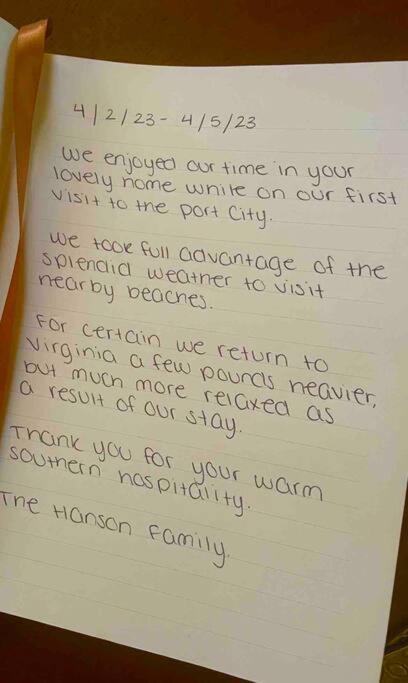 4/2/23 - 4/5/23
We enjoyed our time in your
lovely home while on our first
visit to the port city.
We took full advantage of the
splendid weather to visit
nearby beaches.
For certain we return to
Virginia a few pounds heavier,
but much more relaxed as
a result of our stay.
Thank you for your warm
southern hospitality.
The Hanson Family.